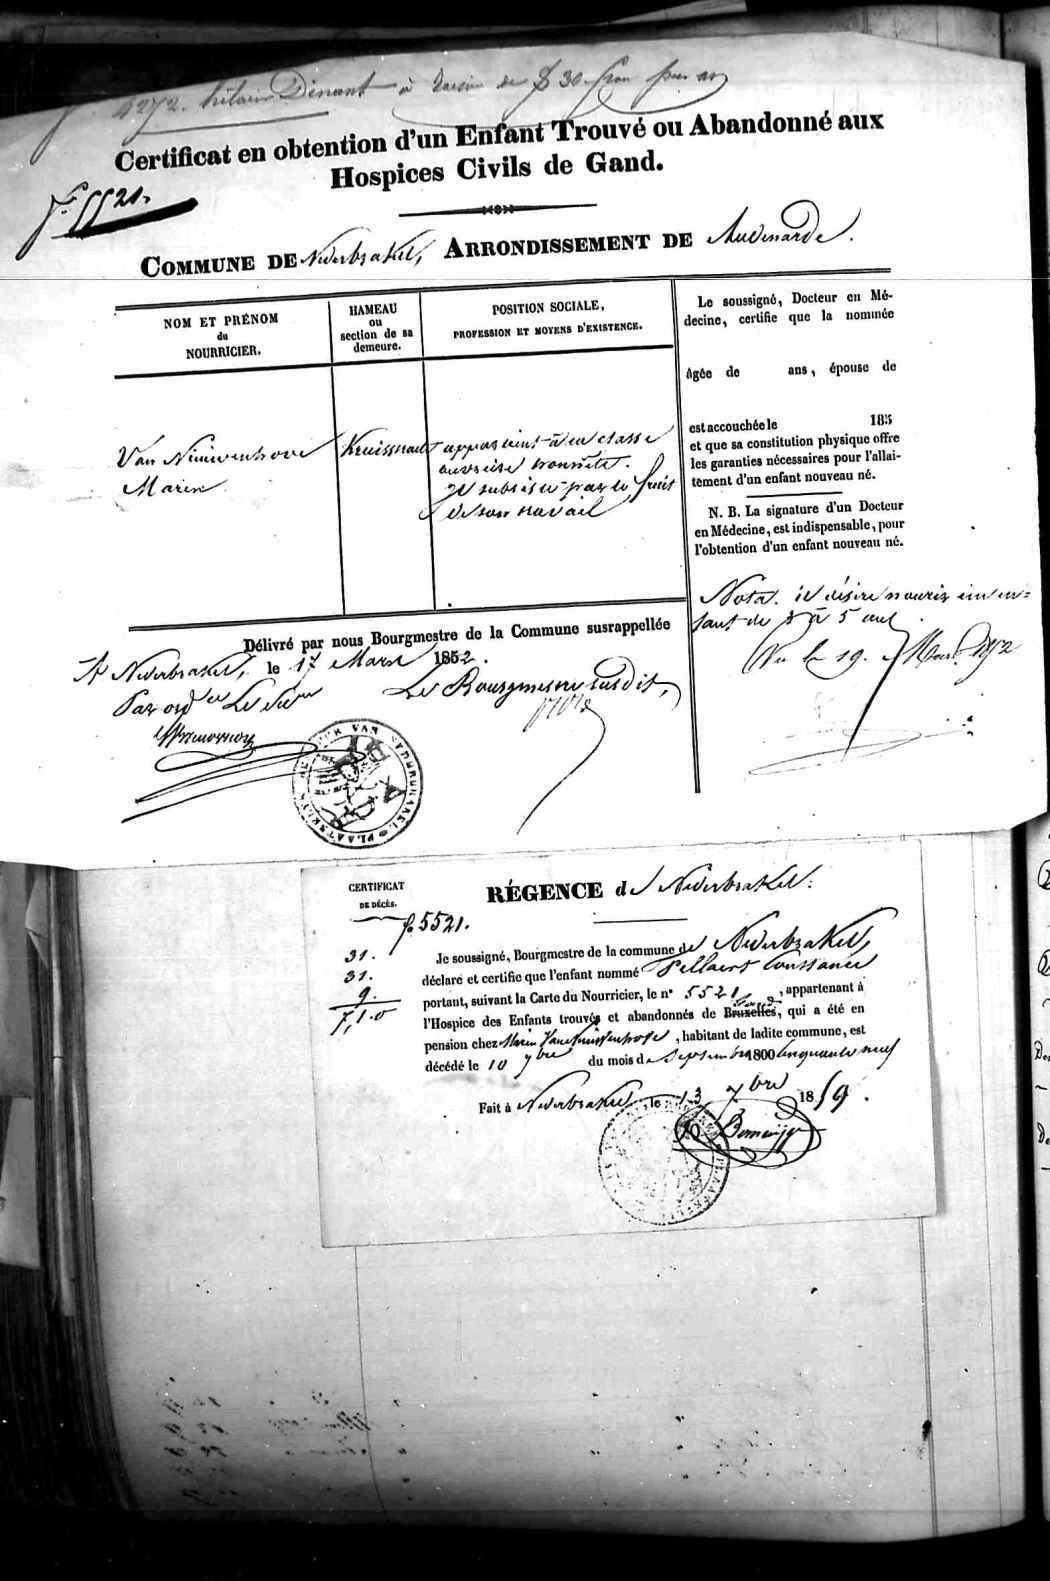 4272. hilaire Dinant à raison de 30 fran par an
Certificat en obtention d'un Enfant Trouvé ou Abandonné aux
Hospices Civils de Gand.
f. 5521.
COMMUNE DE Nederbrakel, ARRONDISSEMENT DE Audenarde.
NOM ET PRÉNOM
du
NOURRICIER.
HAMEAU
ou
section de sa
demeure.
POSITION SOCIALE,
PROFESSION ET MOYENS D'EXISTENCE.
Van Nieuwenhove
Marin
Kruisstraat
appartient à la classe
ouvrière honnête.
Il subsiste par le fruit
de son travail
Le soussigné, Docteur en Mé-
decine, certifie que la nommée
âgée de ans, épouse de
est accouchée le 185
et que sa constitution physique offre
les garanties nécessaires pour l'allai-
tement d'un enfant nouveau né.
N. B. La signature d'un Docteur
en Médecine, est indispensable, pour
l'obtention d'un enfant nouveau né.
Nota. il désire nourir un en=
fant de à 5 ans
Vu le 19. Mars 1852
Délivré par nous Bourgmestre de la Commune susrappellée
A Nederbrakel, le 17 Mars 1852.
Par ord ce Le Secre
Le Bourgmestre susdit,
PLAATSELYK BESTUUR VAN NEDERBRAKEL
CERTIFICAT
DE DÉCÈS.
f. 5521.
31.
31.
9.
7,1.0
RÉGENCE de Nederbrakel:
Je soussigné, Bourgmestre de la commune de Nederbrakel,
déclare et certifie que l'enfant nommé Pellaert Constance
portant, suivant la Carte du Nourricier, le n° 5521, appartenant à
l'Hospice des Enfants trouvés et abandonnés de Bruxelles, qui a été en
Gand
pension chez Marin Van Nieuwenhove, habitant de ladite commune, est
décédé le 10 7bre du mois de Septembre 1800 Cinquante neuf
Fait à Nederbrakel, le 13 7bre 1859.